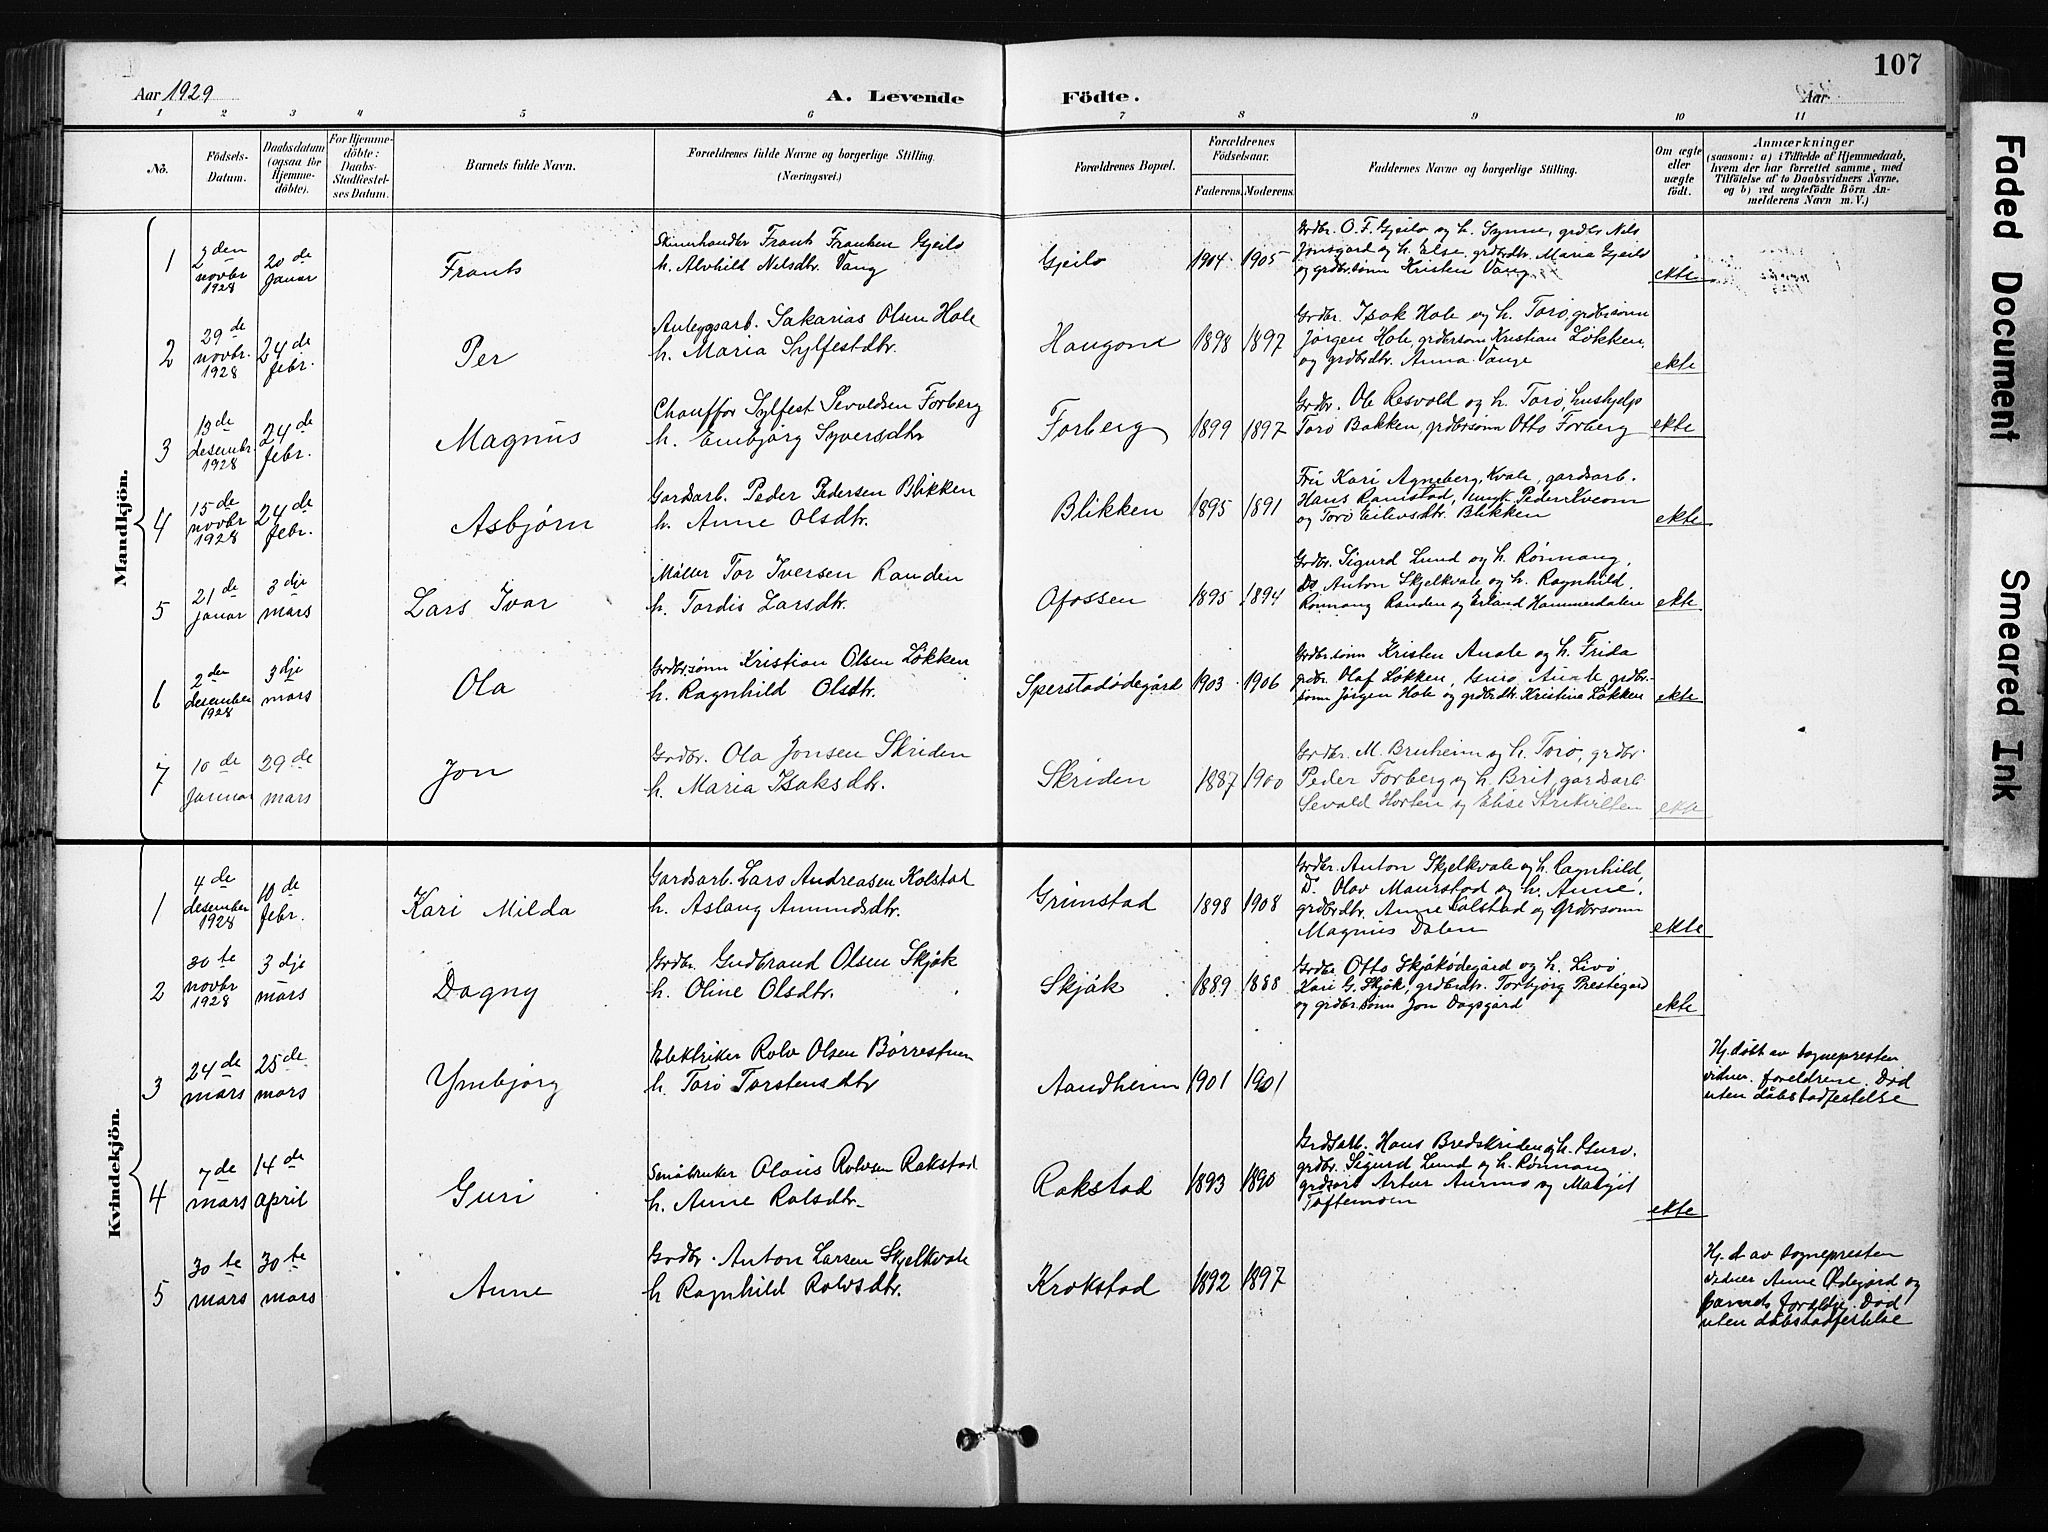 107
Aar 1929
A. Levende Födte.
Aar
1 2 3 4 5 6 7 8 9 10 11
No.
Födsels-Datum.
Daabsdatum (ogsaa for Hjemme-döbte).
For Hjemme-döbte: Daabs-Stadfæstel-ses Datum.
Barnets fulde Navn.
Forældrenes fulde Navne og borgerlige Stilling.
(Næringsvei.)
Forældrenes Bopæl.
Forældrenes Födselsaar.
Faderens. Moderens.
Faddernes Navne og borgerlige Stilling.
Om ægte eller uægte födt.
Anmærkninger
(saasom: a) i Tilfælde af Hjemmedaab,
hvem der har forrettet samme, med
Tilföielse af to Daabsvidners Navne,
og b) ved uægtefödte Börn An-
melderens Navn m. V.)
Mandkjön.
1
2den novbr 1928
20de januar
Frants
Skinnhandler Frants Frantsen Gjeilo
h. Alvhild Nilsdtr. Vang
Gjeilo
1904 1905
Grdbr. O. F. Gjeilo og h. Synne, grdbr Nils
Jonsgard og h. Else, grdbrdtr. Maria Gjeilo
og grdbrsønn Kristen Vang
ekte
2
29de novbr. 1928
24de febr.
Per
Anleggsarb. Sakarias Olsen Hole
h. Maria Sylfestdtr.
Haugone
1898 1897
Grdbr. Isak Hole og h. Toro, grdbrsønn
Jørgen Hole, grdbrsønn Kristian Løkken,
og grdbrdtr. Anna Vange
ekte
3
13de desembr. 1928
24de febr.
Magnus
Chauffør Sylfest Sevaldsen Forberg
h. Embjørg Syversdtr
Forberg
1899 1897
Grdbr. Ole Resvold og h. Toro, hushjelp
Toro Bakken, grdbrsønn Otto Forberg
ekte
4
15de novbr 1928
24de febr.
Asbjørn
Gardsarb. Peder Pedersen Blikken
h. Anne Olsdtr.
Blikken
1895 1891
Fru Kari Agneberg, Kvale, gardsarb.
Hans Ramstad, ungk. Peder Kvcom
og Toro Eilevsdtr. Blikken
ekte
5
21de januar
3dje mars
Lars Ivar
Møller Tor Iversen Randen
h. Tordis Larsdtr.
Ofossen
1895 1894
Grdbr. Sigurd Lund og h. Rønnaug,
Do Anton Skjelkvale og h. Ragnhild.
Rønnaug Randen og Erland Hammerdalen
ekte
6
2den desember 1928
3dje mars
Ola
Grdbrsønn Kristian Olsen Løkken
h. Ragnhild Olsdtr.
Sperstadødegård
1903 1906
Grdbrsønn Kristen Aaale og h. Frida
grdbr. Olaf Løkken, Guro Aaale, grdbr-
sønn Jørgen Hole og grdbrdtr. Kristine Løkken
ekte
7
10de januar
29de mars
Jon
Grdbr. Ola Jonsen Skriden
h. Maria Isaksdtr.
Skriden
1887 1900
Grdbr. M. Bruheim og h. Toro, grdbr.
Peder Forberg og h. Brit, gardsarb.
Sevald Horten og Elise
ekte
Kvindekjön.
1
4de desember 1928
10de febr.
Kari Milda
Gardsarb. Lars Andreasen Kolstad
h. Aslaug Amundsdtr.
Grimstad
1898 1908
Grdbr. Anton Skjelkvale og h. Ragnhild,
D. Olav Maurstad og h. Anne,
grdbrdtr. Anne Kolstad og grdbrsønn
Magnus Dalen
ekte
2
30te novbr 1928
3dje mars
Dagny
Grdbr. Gudbrand Olsen Skjåk
h. Oline Olsdtr.
Skjåk
1889 1888
Grdbr. Otto Skjåkødegård og h. Livo,
Kari G. Skjåk, grdbrdtr. Torbjørg Prestegard
og grdbrsønn Jon Dagsgård
ekte
3
24de mars
25de mars
Ymbjørg
Elektriker Rolv Olsen Børrestuen
h. Toro Torstensdtr
Aandheim
1901 1901
Hj.døbt av sognepresten
vidner foreldrene. Død
uten dåbsstadfestelse
4
7de mars
14de april
Guri
Småbruker Olaus Rolvsen Rakstad
h. Anne Rolsdtr.
Rakstad
1893 1890
Grdsarb. Hans Bredskriden og h. Guro,
grdbr. Sigurd Lund og h. Rønnaug,
grdsarb Artur Aamo og Margit
Toftemoen
ekte
5
30te mars
30te mars
Anne
Grdbr. Anton Larsen Skjelkvale
h Ragnhild Rolvsdtr.
Krokstad
1892 1897
Hj. d av sognepresten
vidner Anne Ødegård og
barnets foreldre. Død
uten dåbsstadfestelse
Faded Document
Smeared Ink